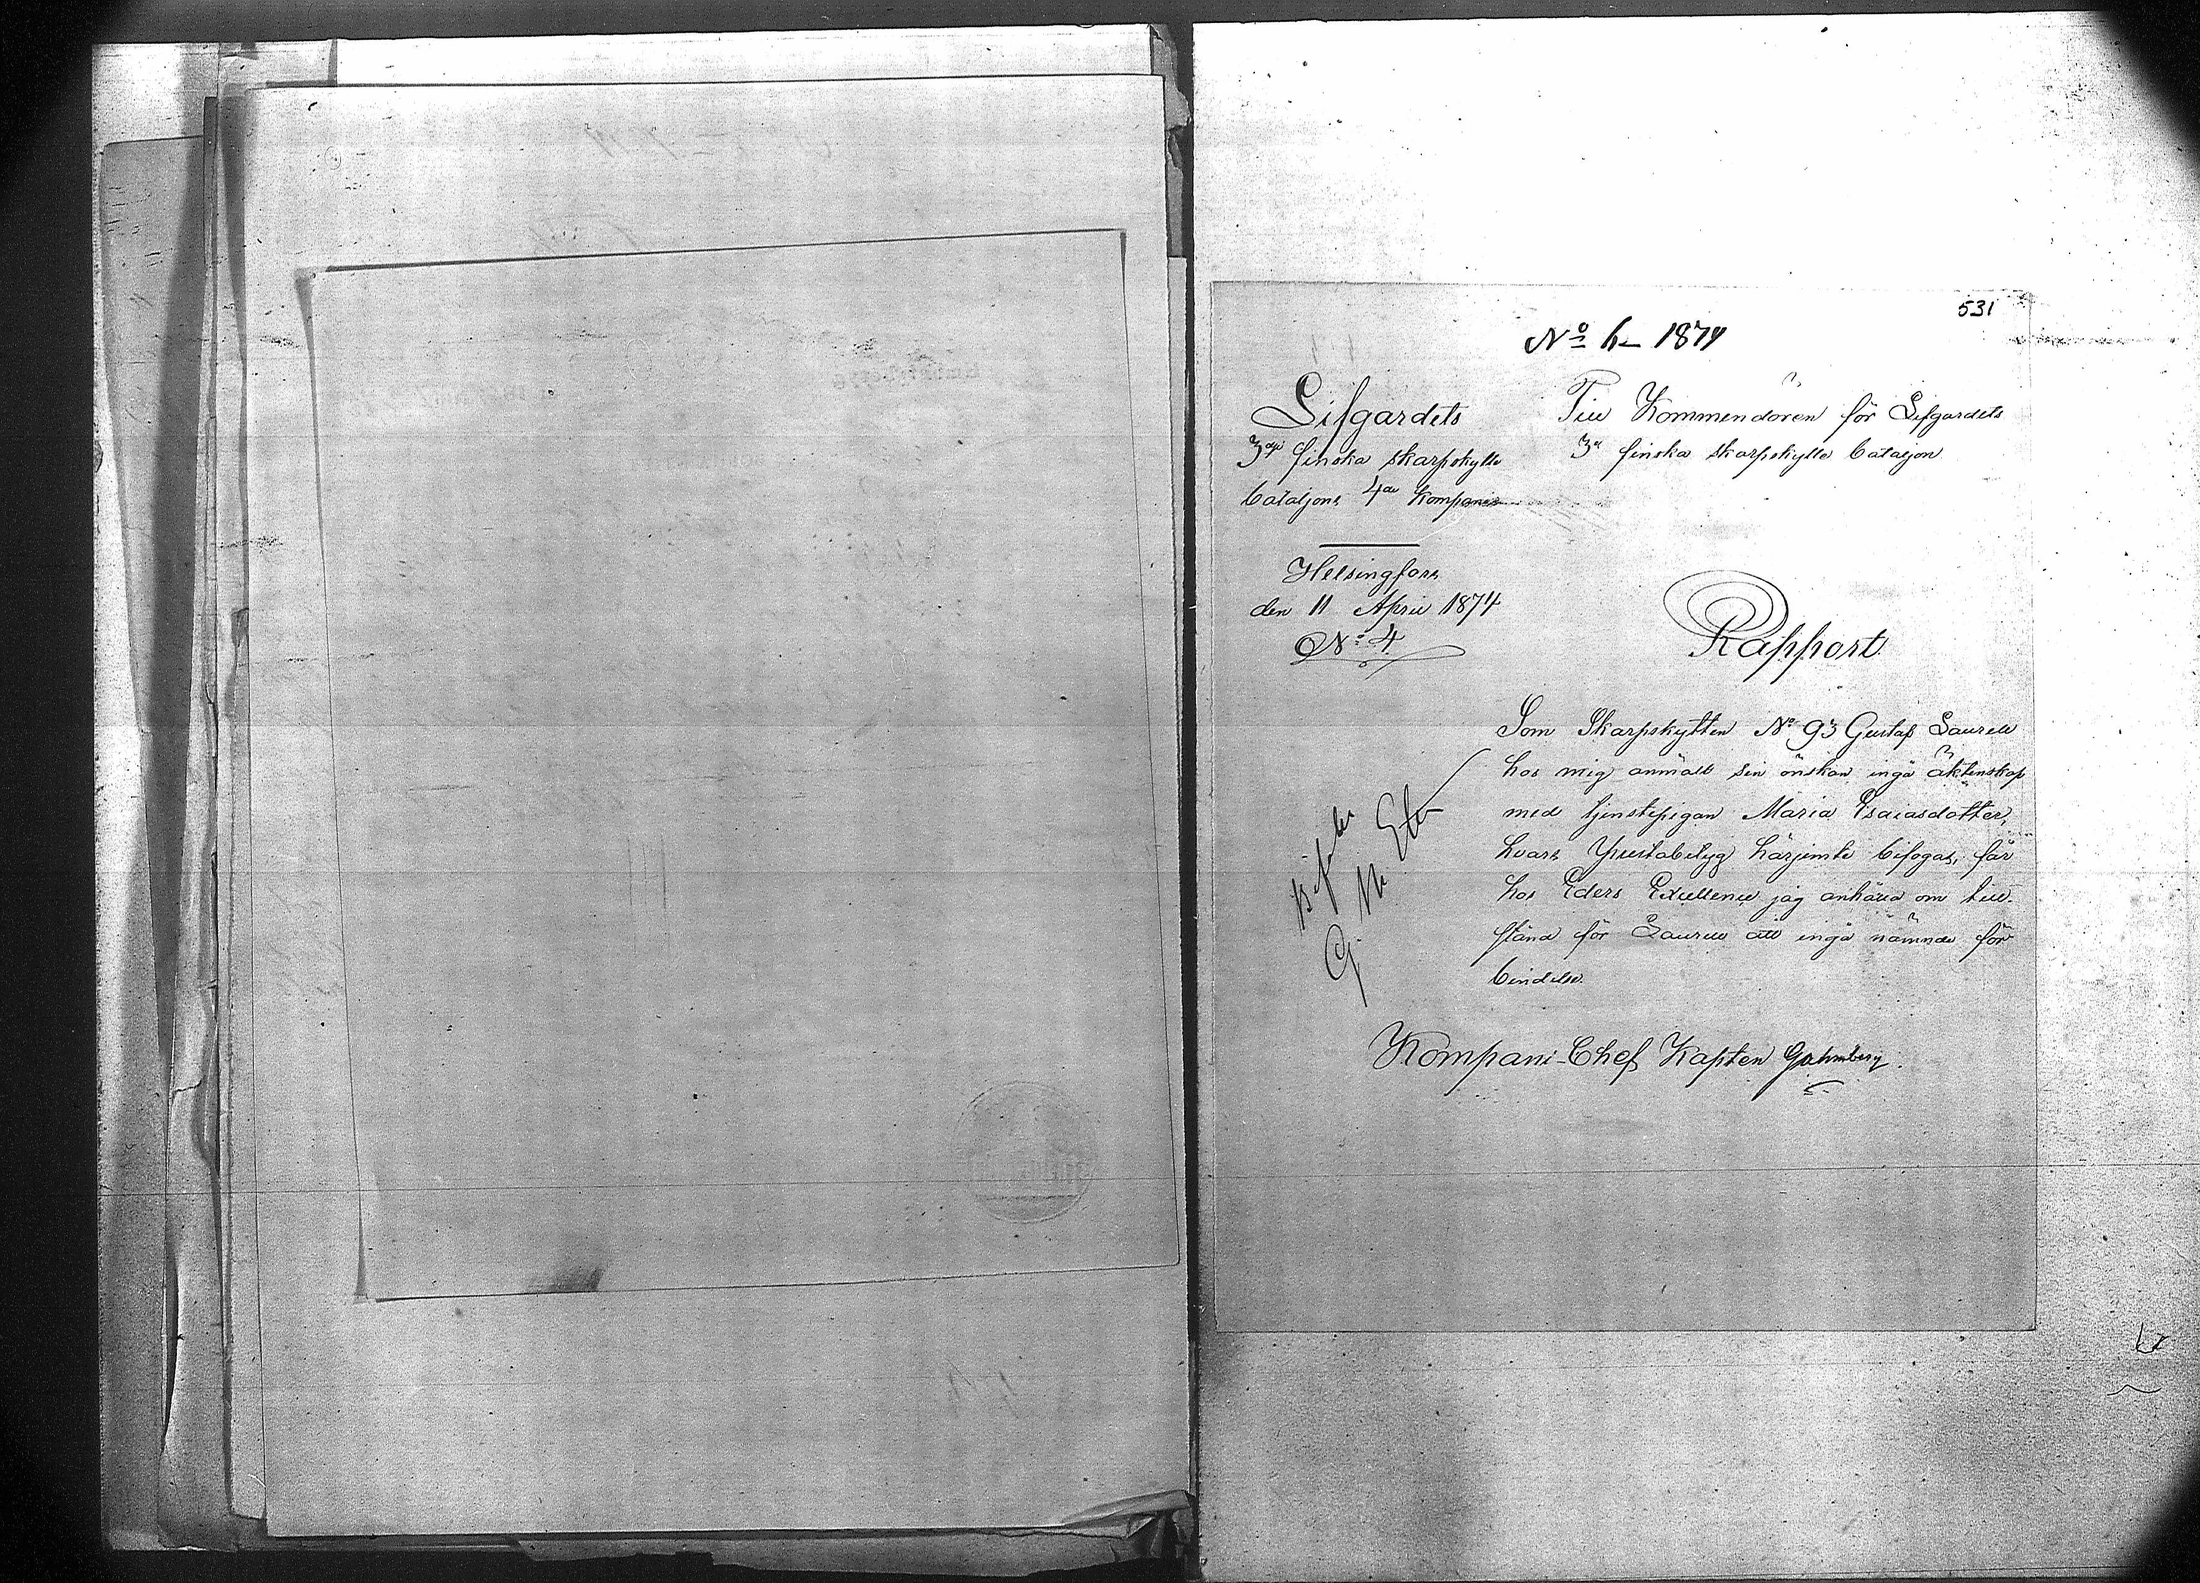 531
No h– 1874
Lifgardets
3dje finska skarpskytte
bataljons 4de Kompanie
Till Kommendören för Lifgardets
3e finska skarpskytte bataljon
Helsingfors
den 11 April 1874
No 4
Rapport
Som Skarpskytten No 93 Gustaf Laurell
hos mig anmält sin önskan ingå äktenskap
med tjenstepigan Maria Esaiasdotter,
hvars Prestabetyg härjemte bifogas, får
hos Eders Excellence jag anhålla om till-
stånd för Laurell att ingå nämnde för
bindelse.
Kompani-Chef Kapten Gahmberg.